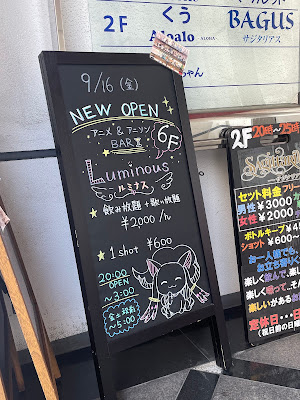 くう
2F
Aloalo
ALOHA
BAGUS
サジタリアス
ちゃん
9/16(金)
NEW OPEN
アニメ&アニソン
BAR
6F
Luminous
ルミナス
飲み放題+歌い放題
¥2000/h
1shot ¥600
20:00
OPEN
~3:00
~5:00
2F 20時~25時
セット料金
男性¥3000
女性¥2000
ボトルキープ
ショット¥600~
お一人様でも
お立ち寄り
楽しく飲んで、楽し
楽しく唄って
楽しいがある
定休日
(祝日前の日曜